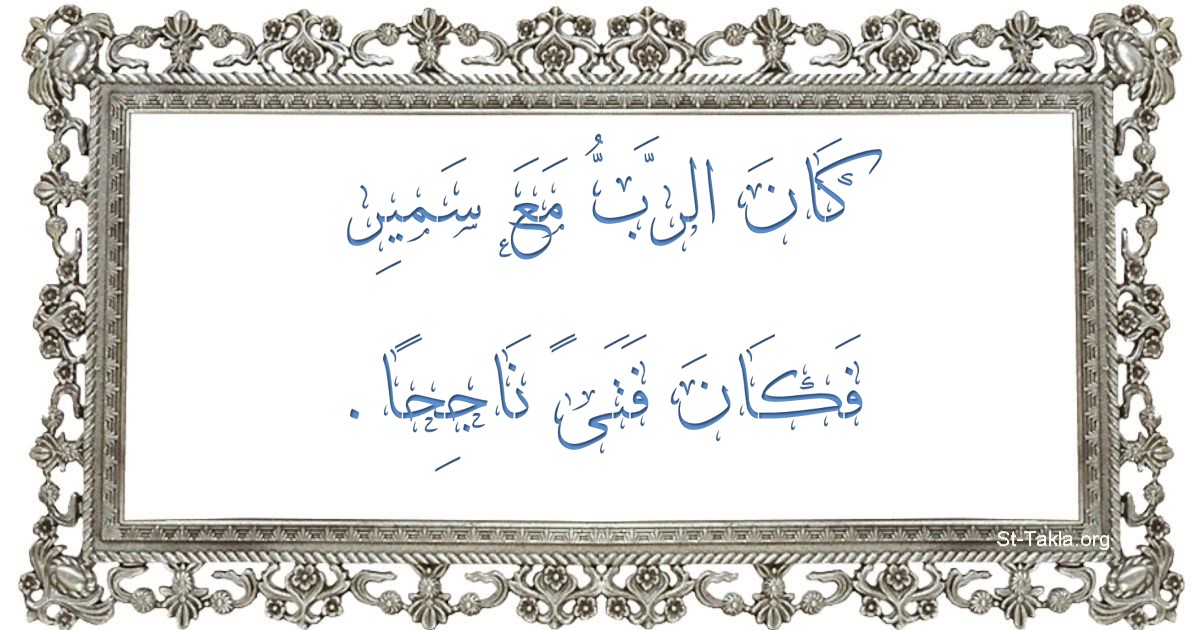 كَانَ الرَّبُّ مَعَ سَمِيرِ
فَكَانَ فَتَىً نَاجِحًا .
St-Takla.org